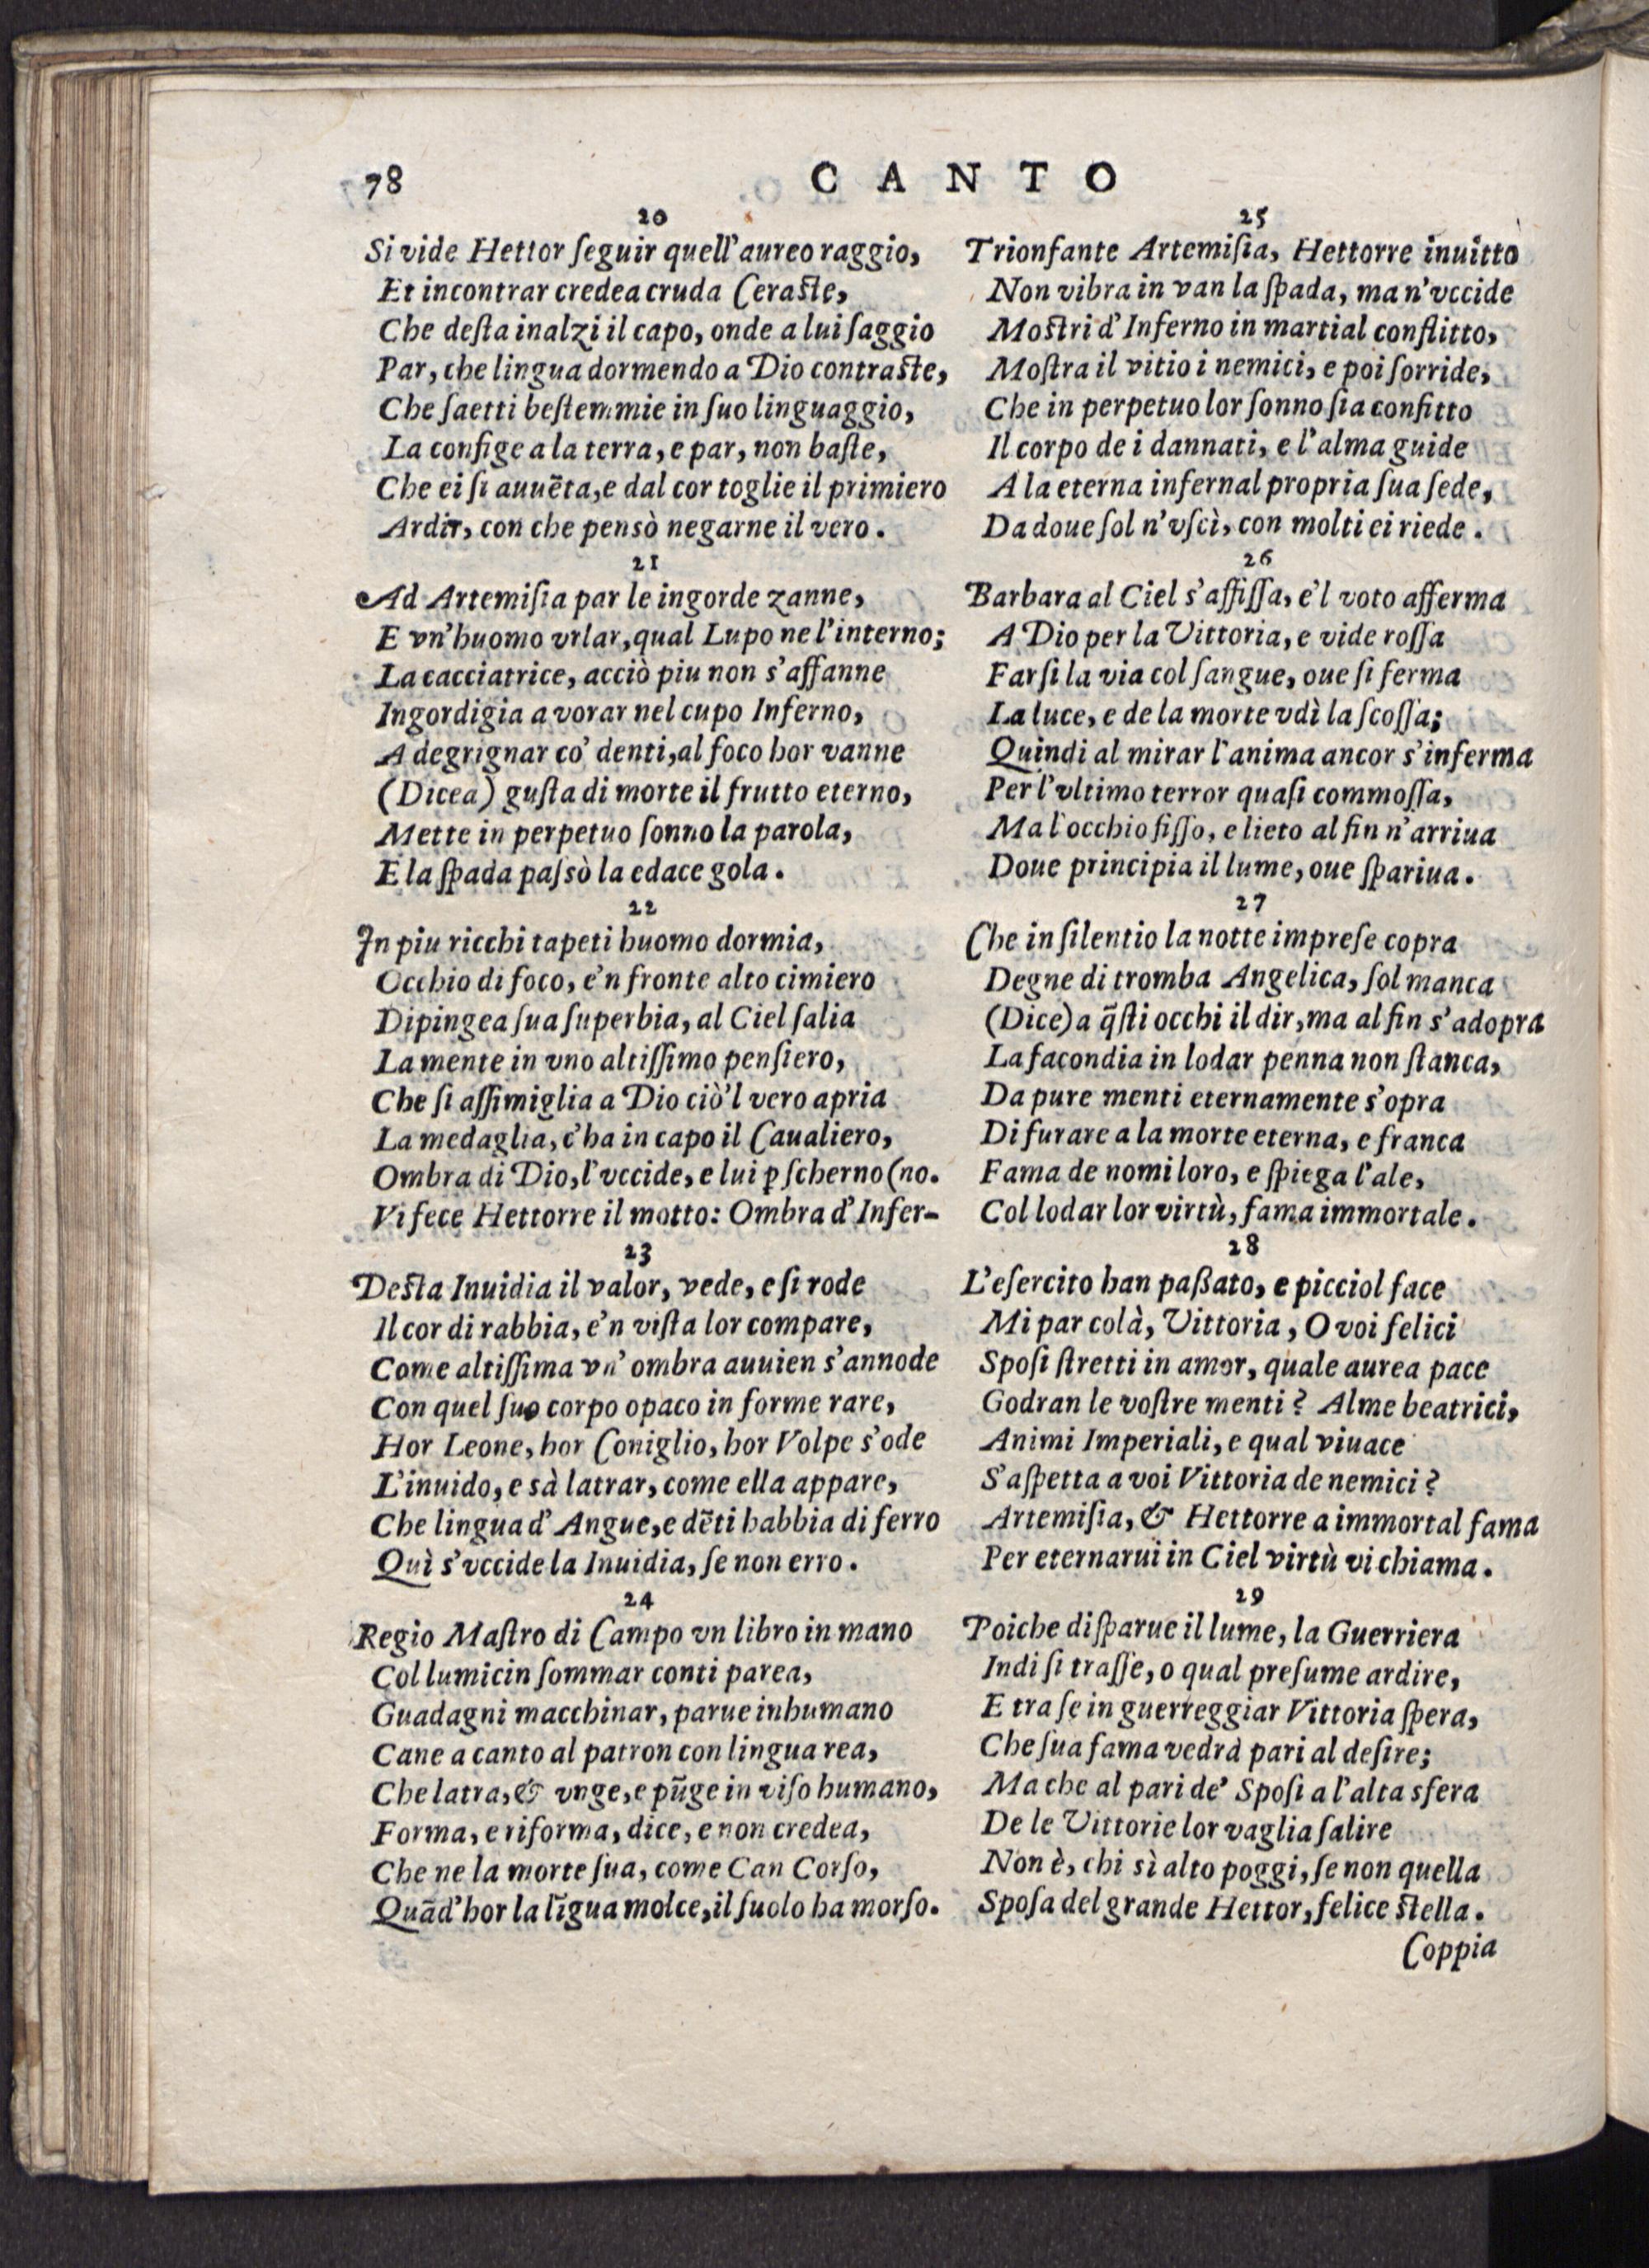 78
CANTO
20
Si vide Hettor ſeguir quell'aureo raggio,
Et incontrar credea cruda Ceraſte,
Che deſta inalzi il capo, onde a lui ſaggio
Par, che lingua dormendo a Dio contraſte,
Che ſaetti beſtemmie in ſuo linguaggio,
La confige a la terra, e par, non baſte,
Che ei ſi auuẽta, e dal cor toglie il primiero
Ardir, con che pensò negarne il vero.
21
Ad Artemiſia par le ingorde zanne,
E vn'huomo vrlar, qual Lupo ne l'interno;
La cacciatrice, acciò piu non s'affanne
Ingordigia a vorar nel cupo Inferno,
A degrignar co' denti, al foco hor vanne
(Dicea) guſta di morte il frutto eterno,
Mette in perpetuo ſonno la parola,
E la ſpada paſsò la edace gola.
22
In piu ricchi tapeti huomo dormia,
Occhio di foco, e'n fronte alto cimiero
Dipingea ſua ſuperbia, al Ciel ſalia
La mente in vno altiſſimo penſiero,
Che ſi aſſimiglia a Dio ciò'l vero apria
La medaglia, c'ha in capo il Caualiero,
Ombra di Dio, l'vccide, e lui ꝑ ſcherno (no.
Vi fece Hettorre il motto: Ombra d'Infer-
23
Deſta Inuidia il valor, vede, e ſi rode
Il cor di rabbia, e'n viſta lor compare,
Come altiſſima vn'ombra auuien s'annode
Con quel ſuo corpo opaco in forme rare,
Hor Leone, hor Coniglio, hor Volpe s'ode
L'inuido, e sà latrar, come ella appare,
Che lingua d'Angue, e dẽti habbia di ferro
Quì s'vccide la Inuidia, ſe non erro.
24
Regio Maſtro di Campo vn libro in mano
Col lumicin ſommar conti parea,
Guadagni macchinar, parue inhumano
Cane a canto al patron con lingua rea,
Che latra, & vnge, e pũge in viſo humano,
Forma, e riforma, dice, e non credea,
Che ne la morte ſua, come Can Corſo,
Quãd'hor la lĩgua molce, il ſuolo ha morſo.
25
Trionfante Artemiſia, Hettorre inuitto
Non vibra in van la ſpada, ma n'vccide
Moſtri d'Inferno in martial conflitto,
Moſtra il vitio i nemici, e poi ſorride,
Che in perpetuo lor ſonno ſia confitto
Il corpo de i dannati, e l'alma guide
A la eterna infernal propria ſua ſede,
Da doue ſol n'vſcì, con molti ei riede.
26
Barbara al Ciel s'affiſſa, e'l voto afferma
A Dio per la Vittoria, e vide roſſa
Farſi la via col ſangue, oue ſi ferma
La luce, e de la morte vdì la ſcoſſa;
Quindi al mirar l'anima ancor s'inferma
Per l'vltimo terror quaſi commoſſa,
Ma l'occhio fiſſo, e lieto al fin n'arriua
Doue principia il lume, oue ſpariua.
27
Che in ſilentio la notte impreſe copra
Degne di tromba Angelica, ſol manca
(Dice) a q̃ſti occhi il dir, ma al fin s'adopra
La facondia in lodar penna non ſtanca,
Da pure menti eternamente s'opra
Di furare a la morte eterna, e franca
Fama de nomi loro, e ſpiega l'ale,
Col lodar lor virtù, fama immortale.
28
L'eſercito han paßato, e picciol face
Mi par colà, Vittoria, O voi felici
Spoſi ſtretti in amor, quale aurea pace
Godran le voſtre menti? Alme beatrici,
Animi Imperiali, e qual viuace
S'aſpetta a voi Vittoria de nemici?
Artemiſia, & Hettorre a immortal fama
Per eternarui in Ciel virtù vi chiama.
29
Poiche diſparue il lume, la Guerriera
Indi ſi traſſe, o qual preſume ardire,
E tra ſe in guerreggiar Vittoria ſpera,
Che ſua fama vedrà pari al deſire;
Ma che al pari de' Spoſi a l'alta sfera
De le Vittorie lor vaglia ſalire
Non è, chi sì alto poggi, ſe non quella
Spoſa del grande Hettor, felice ſtella.
Coppia